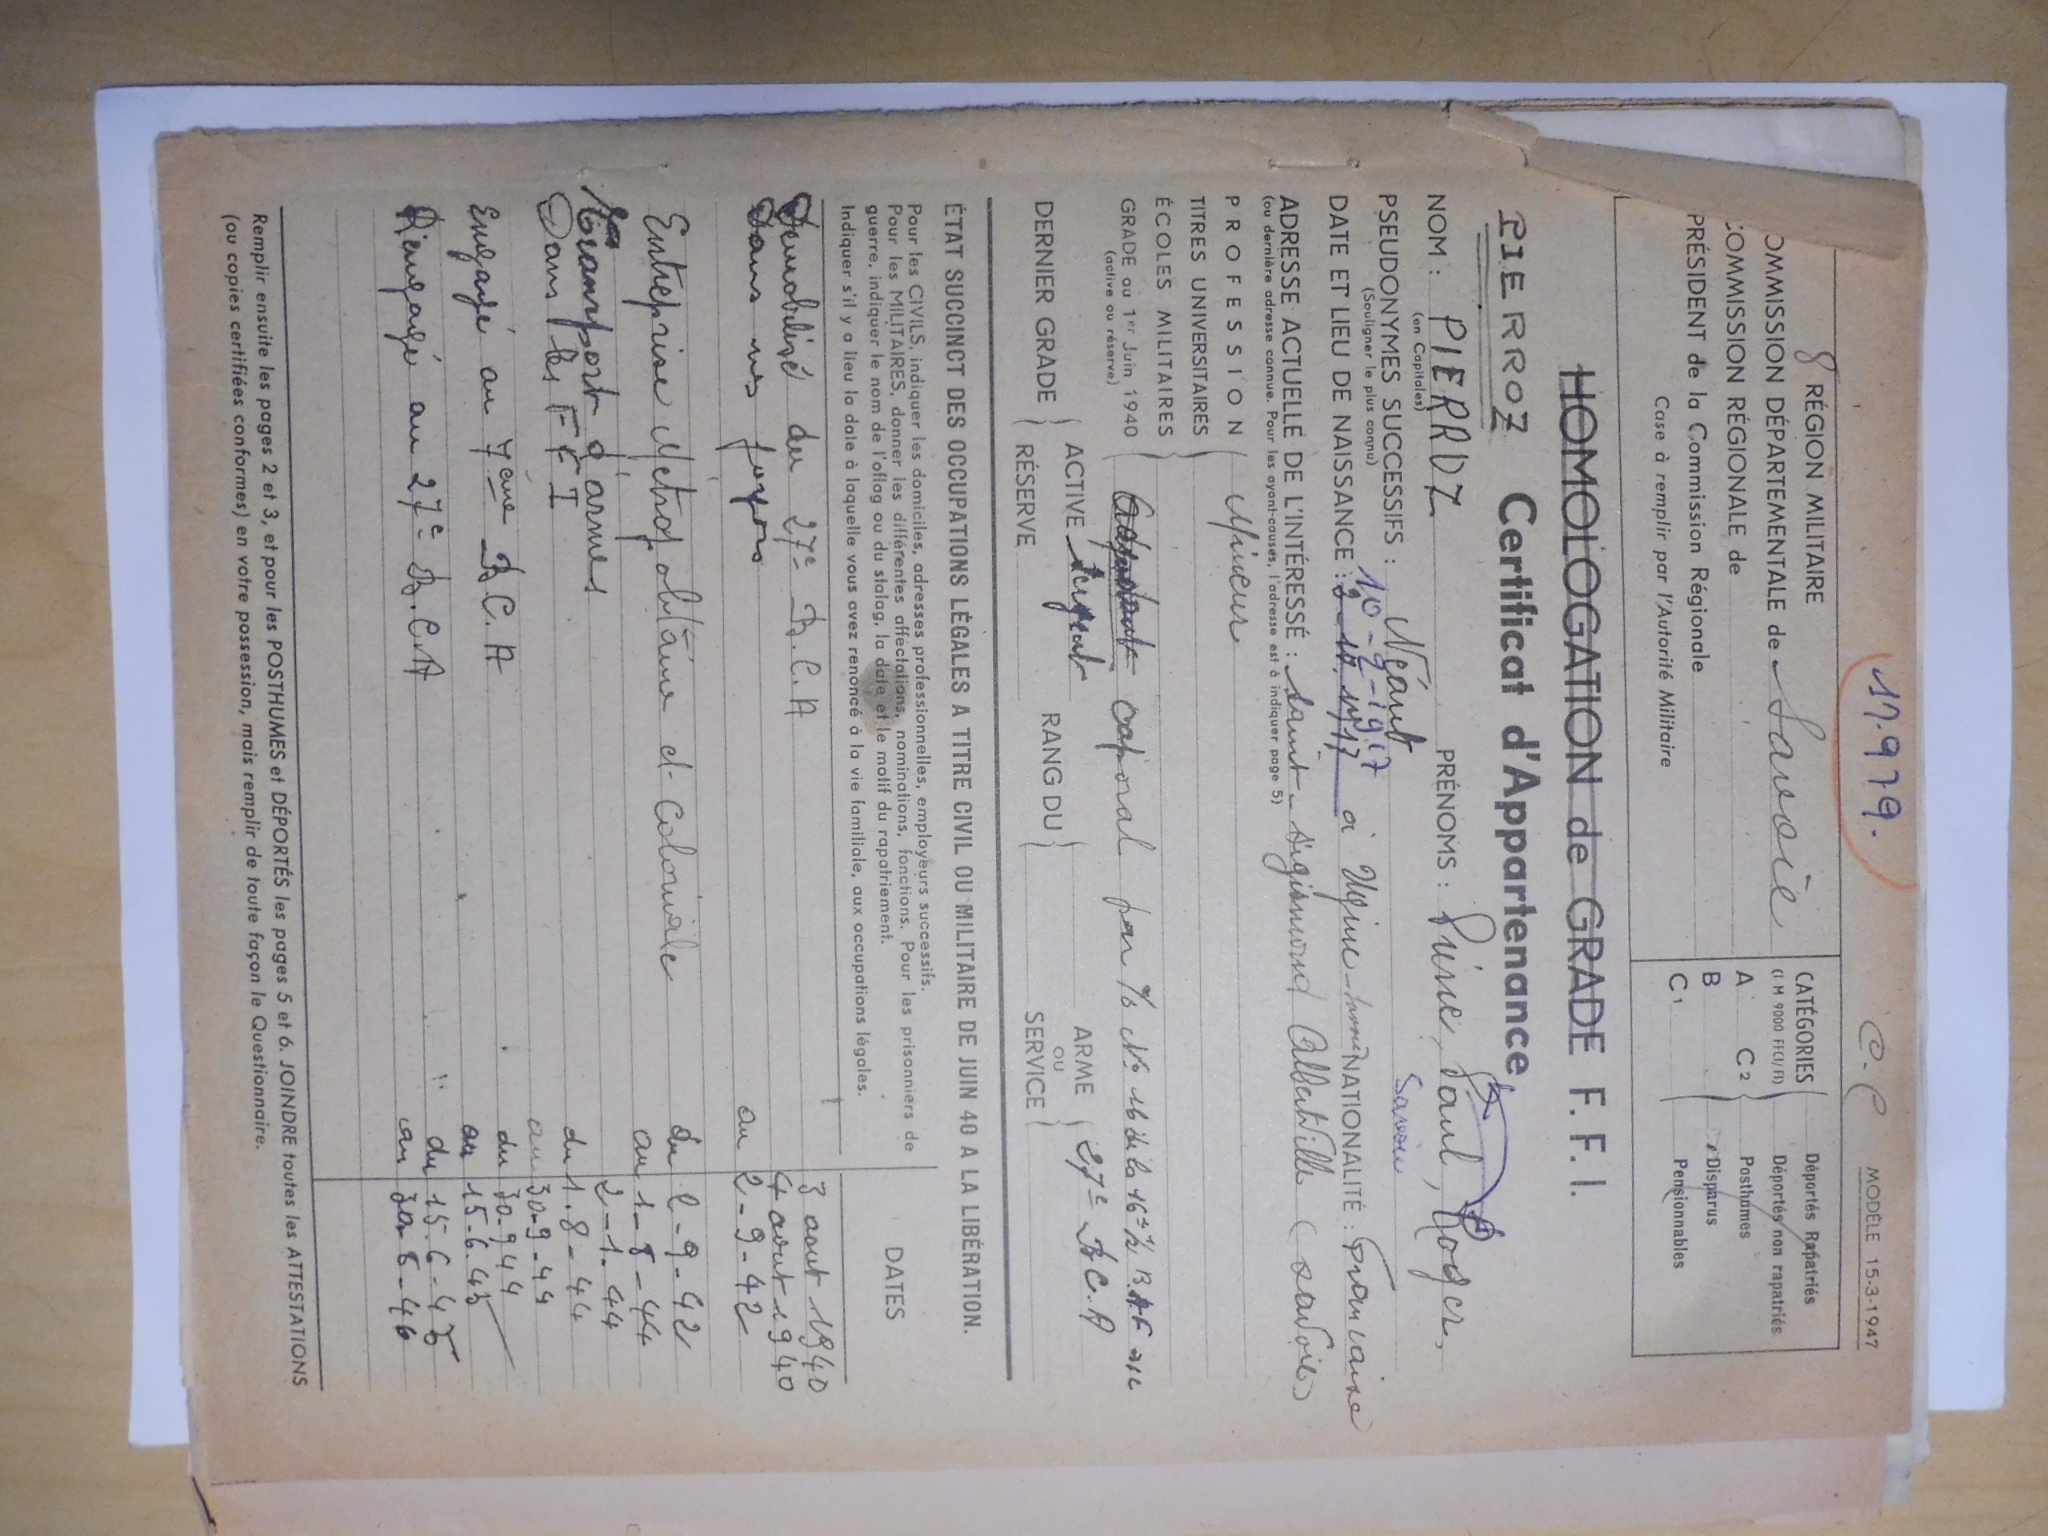 17.979.
C.C
MODÈLE 15-3-1947
8 RÉGION MILITAIRE
OMMISSION DÉPARTEMENTALE de Savoie
COMMISSION RÉGIONALE de
PRÉSIDENT de la Commission Régionale
Case à remplir par l'Autorité Militaire
CATÉGORIES
(I M 9000 FFCI/FI)
A
B
C1
C2
Déportés Rapatriés
Déportés non rapatriés
Posthumes
Disparus
Pensionnables
HOMOLOGATION de GRADE F. F. I.
PIERROZ Certificat d'Appartenance
NOM : PIERROZ PRÉNOMS : Pierre, Paul, Roger,
(en Capitales)
PSEUDONYMES SUCCESSIFS : Néant
(Souligner le plus connu)
10-9-1917
Savoie
DATE ET LIEU DE NAISSANCE : à Ugine NATIONALITÉ : Française
ADRESSE ACTUELLE DE L'INTÉRESSÉ : Saint-Sigismond Albertville (Savoie)
(ou dernière adresse connue. Pour les ayant-causes, l'adresse est à indiquer page 5)
PROFESSION Mineur
TITRES UNIVERSITAIRES
ÉCOLES MILITAIRES
GRADE au 1er Juin 1940 caporal par
(active ou réserve)
DERNIER GRADE
ACTIVE Sergent
RÉSERVE
RANG DU
ARME
OU
SERVICE
27e B.C.A
ÉTAT SUCCINCT DES OCCUPATIONS LÉGALES A TITRE CIVIL OU MILITAIRE DE JUIN 40 A LA LIBÉRATION.
Pour les CIVILS, indiquer les domiciles, adresses professionnelles, employeurs successifs.
Pour les MILITAIRES, donner les différentes affectations, nominations, fonctions. Pour les prisonniers de
guerre, indiquer le nom de l'oflag ou du stalag, la date et le motif du rapatriement.
Indiquer s'il y a lieu la date à laquelle vous avez renoncé à la vie familiale, aux occupations légales.
DATES
Démobilisé du 27e B.C.A 3 aout 1940
Dans mes foyers 4 aout 1940
au 2-9-42
Entreprise Metropolitaine et Coloniale du 2-9-42
au 1-8-44
Transport d'armes 2-1-44
Dans les F F I du 1.8-44
au 30-9-44
Engagé au 7ème B.C.A du 30-9 44
au 15-6.45
Rengagé au 27e B.C.A du 15-6-45
au
Remplir ensuite les pages 2 et 3, et pour les POSTHUMES et DÉPORTÉS les pages 5 et 6. JOINDRE toutes les ATTESTATIONS
(ou copies certifiées conformes) en votre possession, mais remplir de toute façon le Questionnaire.